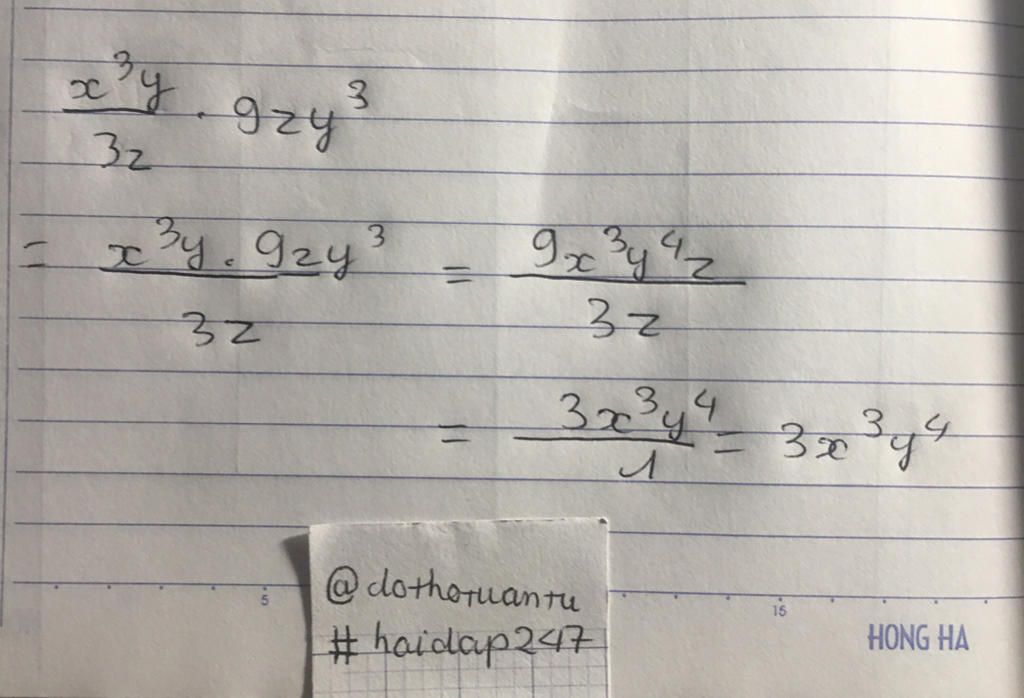 x³y/3z . 9zy³
= x³y . 9zy³/3z = 9x³y⁴z/3z
= 3x³y⁴/1 = 3x³y⁴
@dothotuantu
#haidap247
5 15
HONG HA